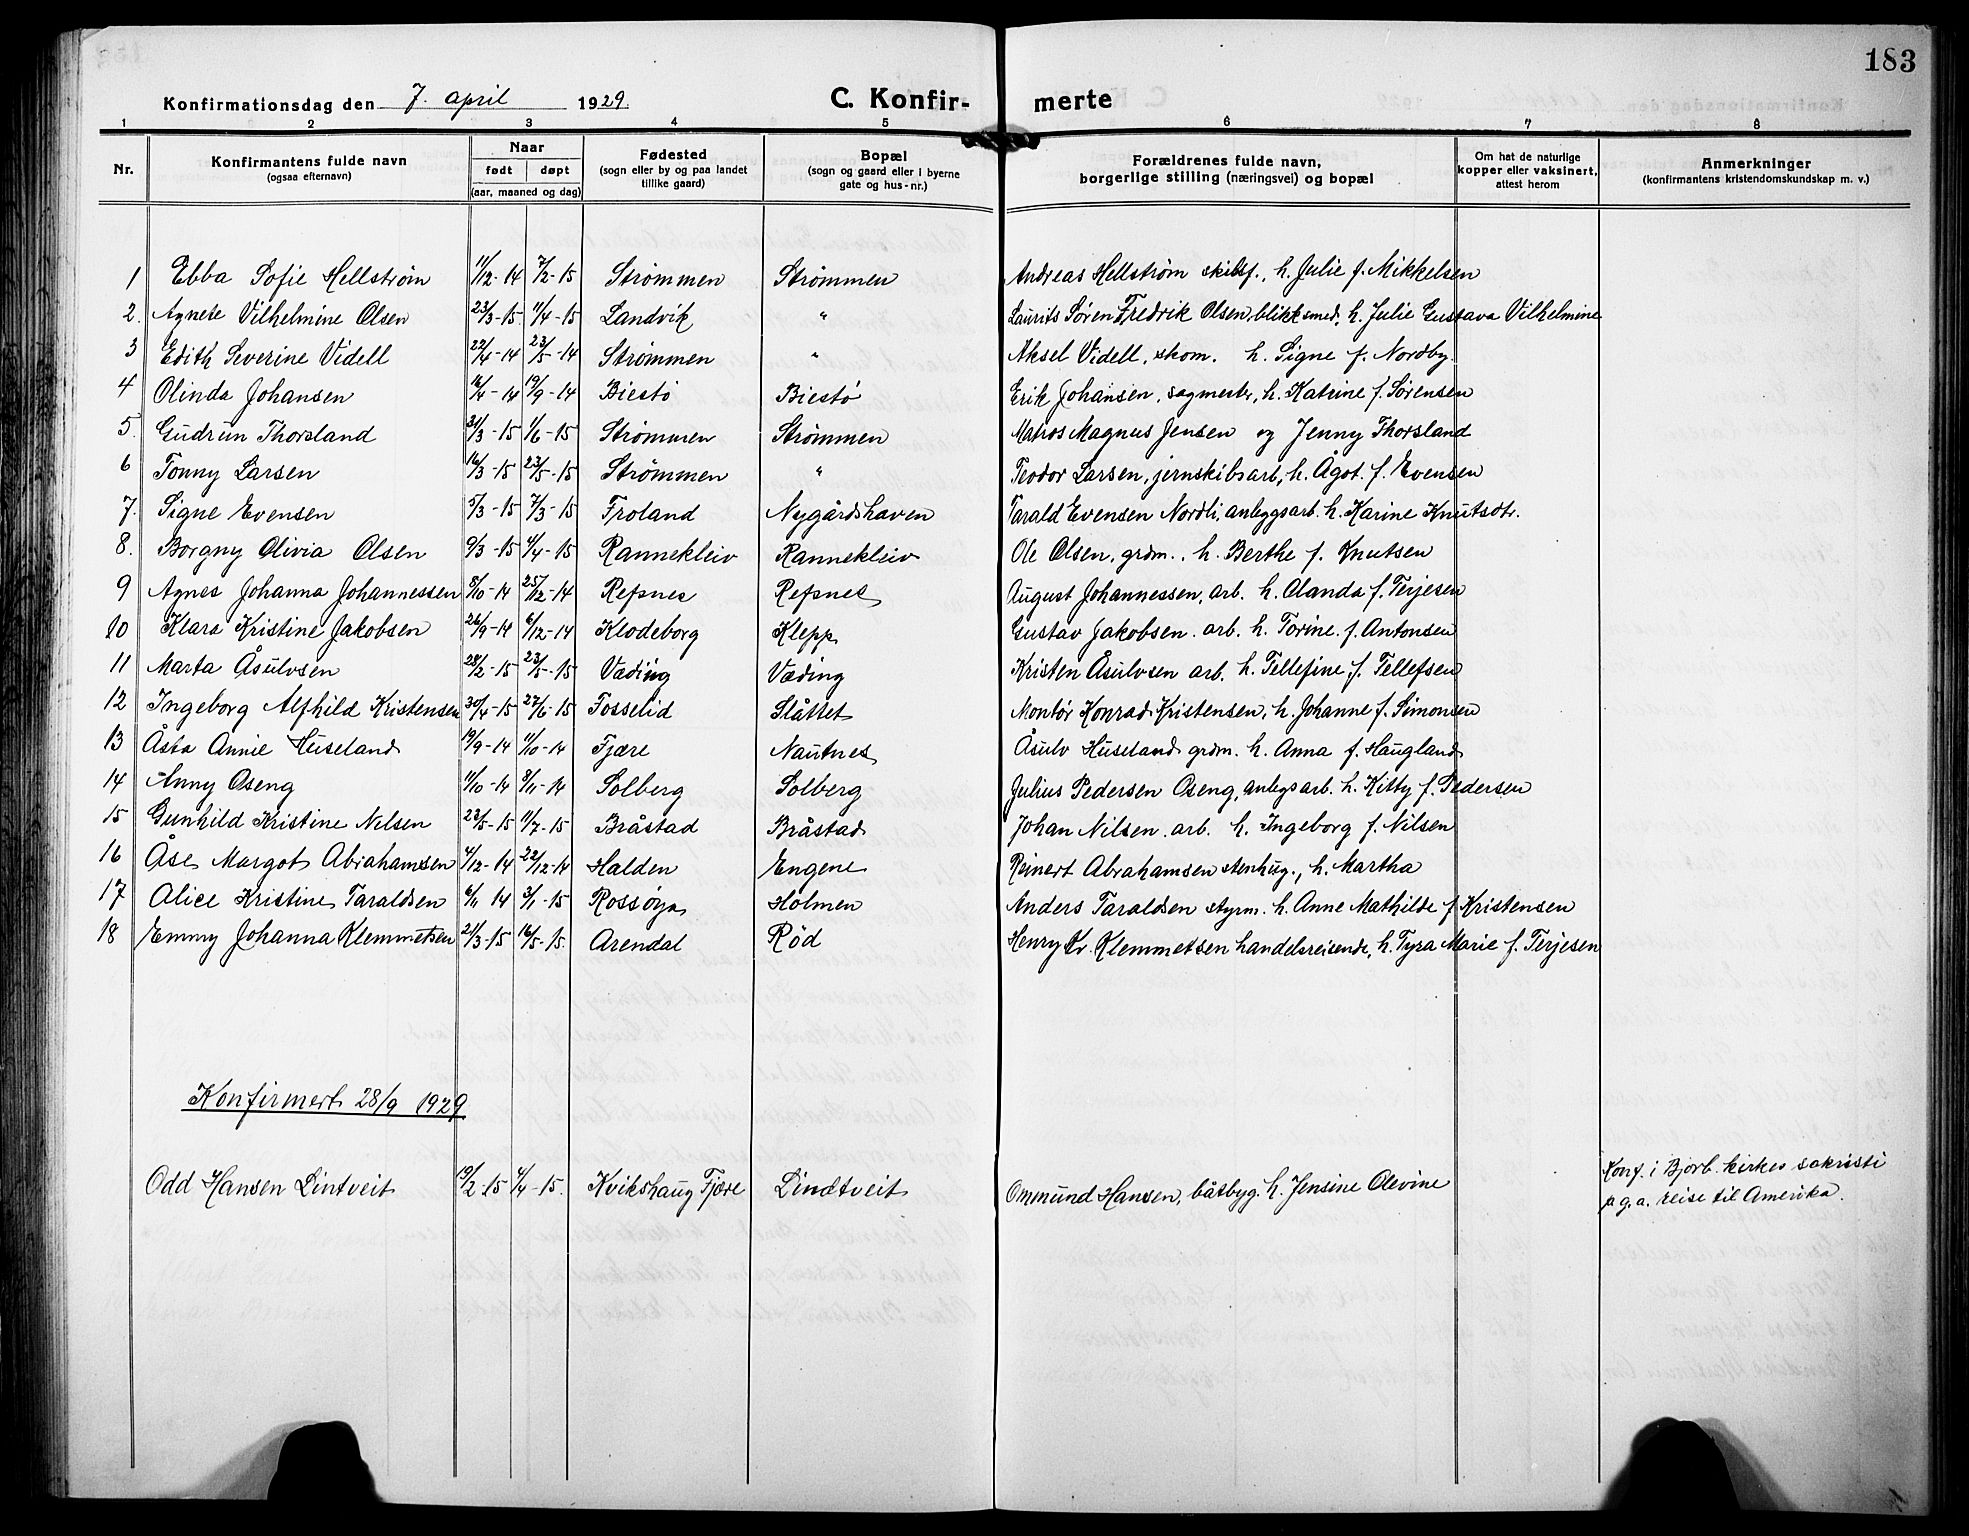 183
Konfirmationsdag den 7. april 1929. C. Konfir- merte
1 2 3 4 5 6 7 8
Nr. Konfirmantens fulde navn (ogsaa efternavn) Naar født døpt (aar, maaned og dag) Fødested (sogn eller by og paa landet tillike gaard) Bopæl (sogn og gaard eller i byerne gate og hus-nr.) Forældrenes fulde navn, borgerlige stilling (næringsvei) og bopæl Om hat de naturlige kopper eller vaksinert, attest herom Anmerkninger (konfirmantens kristendomskundskap m. v.)
1 Ebba Sofie Hellstrøm 11/12-14 7/2-15 Strømmen Strømmen Andreas Hellstrøm skibsf., h. Julie f. Mikkelsen
2. Agnete Vilhelmine Olsen 23/3-15 11/4-15 Landvik " Laurits Søren Fredrik Olsen, blikksmed, h. Julie Gustava Vilhelmine
3 Edith Severine Videll 22/4-14 23/5-14 Strømmen " Aksel Videll, skom. h. Signe f. Nordby.
4 Olinda Johansen 16/4-14 19/9-14 Biestø Biestø Erik Johansen, sagmester, h. Katrine f. Sørensen
5. Gudrun Thorsland 31/3-15 1/6-15 Strømmen Strømmen Matros Magnus Jensen og Jenny Thorsland
6 Tonny Larsen 16/3-15 23/5-15 Strømmen " Teodor Larsen, jernskibsarb, h. Ågot f. Evensen
7. Signe Evensen 5/3-15 7/3-15 Froland Nygårdshaven Tarald Evensen Nordli, anleggsarb. h. Karine Knutsdtr.
8. Borgny Olivia Olsen 9/3-15 4/4-15 Rannekleiv Rannekleiv Ole Olsen, grdm., h. Berthe f. Knutsen
9 Agnes Johanna Johannessen 8/10-14 25/12-14 Refsnes Refsnes August Johannessen, arb. h. Olanda f. Terjesen
10 Klara Kristine Jakobsen 26/9-14 6/12-14 Klodeborg Klepp Gustav Jakobsen. arb. h. Torine. f. Antonsen
11 Marta Åsulvsen 28/2-15 23/5-15 Væding Væding Kristen Åsulvsen arb. h. Tellefine f. Tellefsen
12 Ingeborg Alfhild Kristensen 30/4-15 27/6-15 Fosselid Slåttet Montør Konrad Kristensen, h. Johanne f. Simonsen
13 Åsta Annie Huseland 19/9-14 11/10-14 Fjære Nautnes Åsulv Huseland grdm. h. Anna f. Haugland
14 Anny Oseng 11/10-14 8/11-14 Solberg Solberg Julius Pedersen Oseng, anlegsarb. h. Kitty f. Pedersen
15 Gunhild Kristine Nilsen 23/5-15 11/7-15 Bråstad Bråstad Johan Nilsen. arb. h. Ingeborg f. Nilsen
16 Åse Margot Abrahamsen 4/12-14 22/12-14 Halden Engene Reinert Abrahamsen stenhug., h. Martha
17 Alice Kristine Taraldsen 6/11 14 3/1-15 Rossøya Holmen Anders Taraldsen styrm. h. Anne Mathilde f Kristensen
18 Emmy Johanna Klemmetsen 21/3-15 16/5-15. Arendal Rød Henry Kr. Klemmetsen handelsreisende, h. Tyra Marie f. Terjesen
Konfirmert 28/9 1929
Odd Hansen Lintveit 19/2-15 4/4-15. Kvikshaug Fjære Lindtveit Ommund Hansen, båtbyg. h. Jensine Olevine Konf. i Bjorb. kirkes sakristi
p g.a. reise til Amerika.